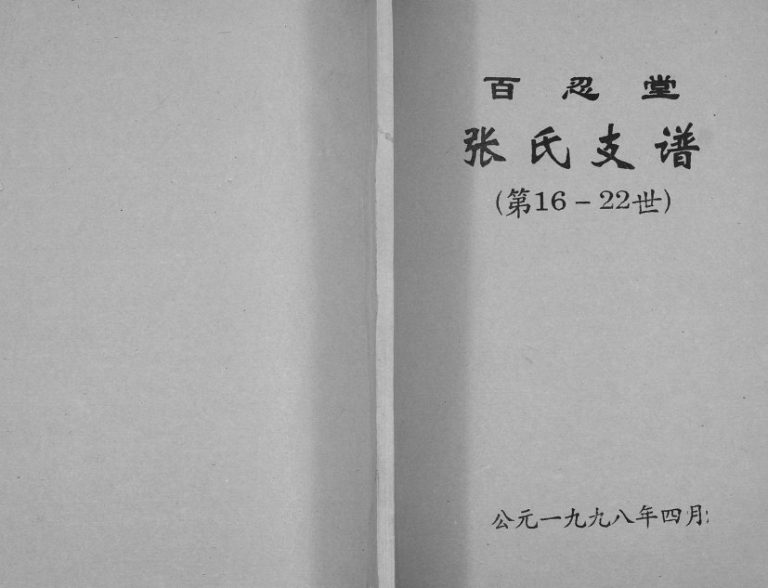 百忍堂
张氏支谱
(第16-22世)
公元一九九八年四月